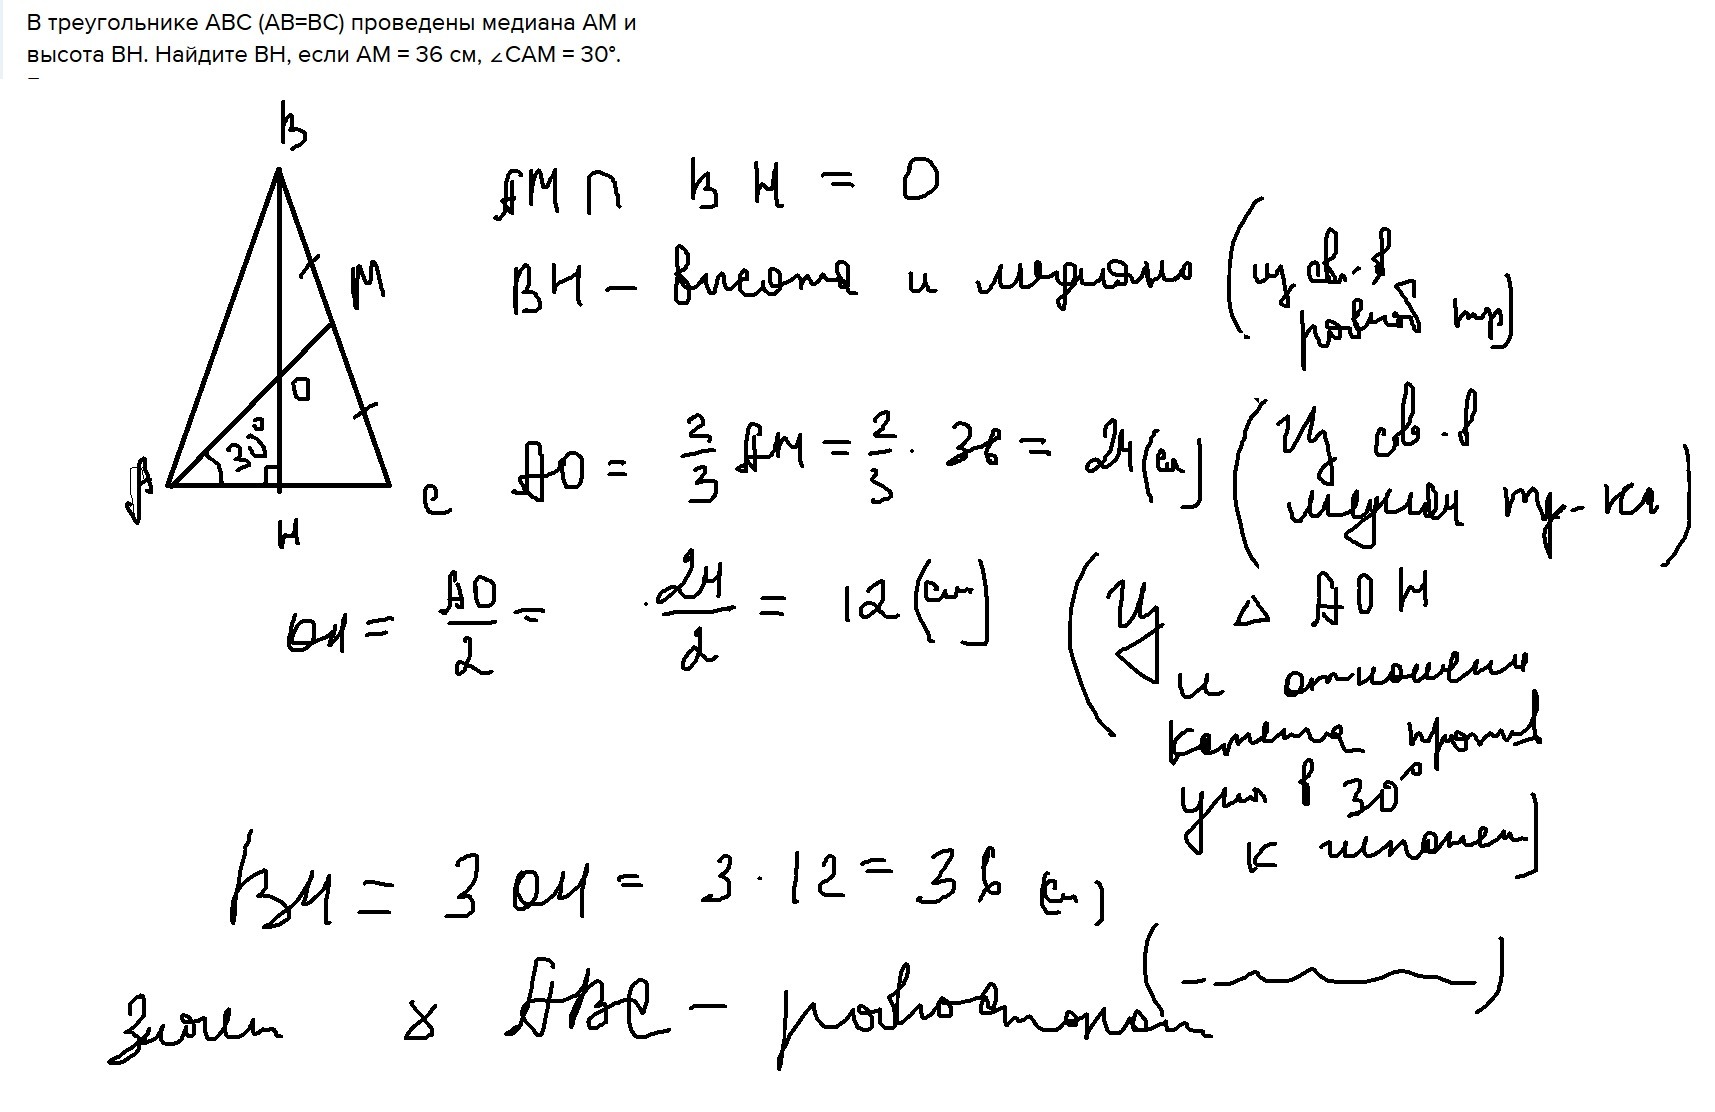 В треугольнике ABC (AB=BC) проведены медиана AM и
высота BH. Найдите BH, если AM = 36 см, ∠CAM = 30°.
B
M
O
30°
A
C
H
AM ∩ BH = O
BH – высота и медиана (из св-в
равноб тр)
AO = 2/3 AM = 2/3 · 36 = 24 (см) (Из св-в
медиан тр-ка)
OH = AO/2 = 24/2 = 12 (см) (Из △ AOH
и отношени
катета против
угла в 30°
к гипотен)
BH = 3 OH = 3 · 12 = 36 (см)
(
)
Значит △ ABC – равносторон